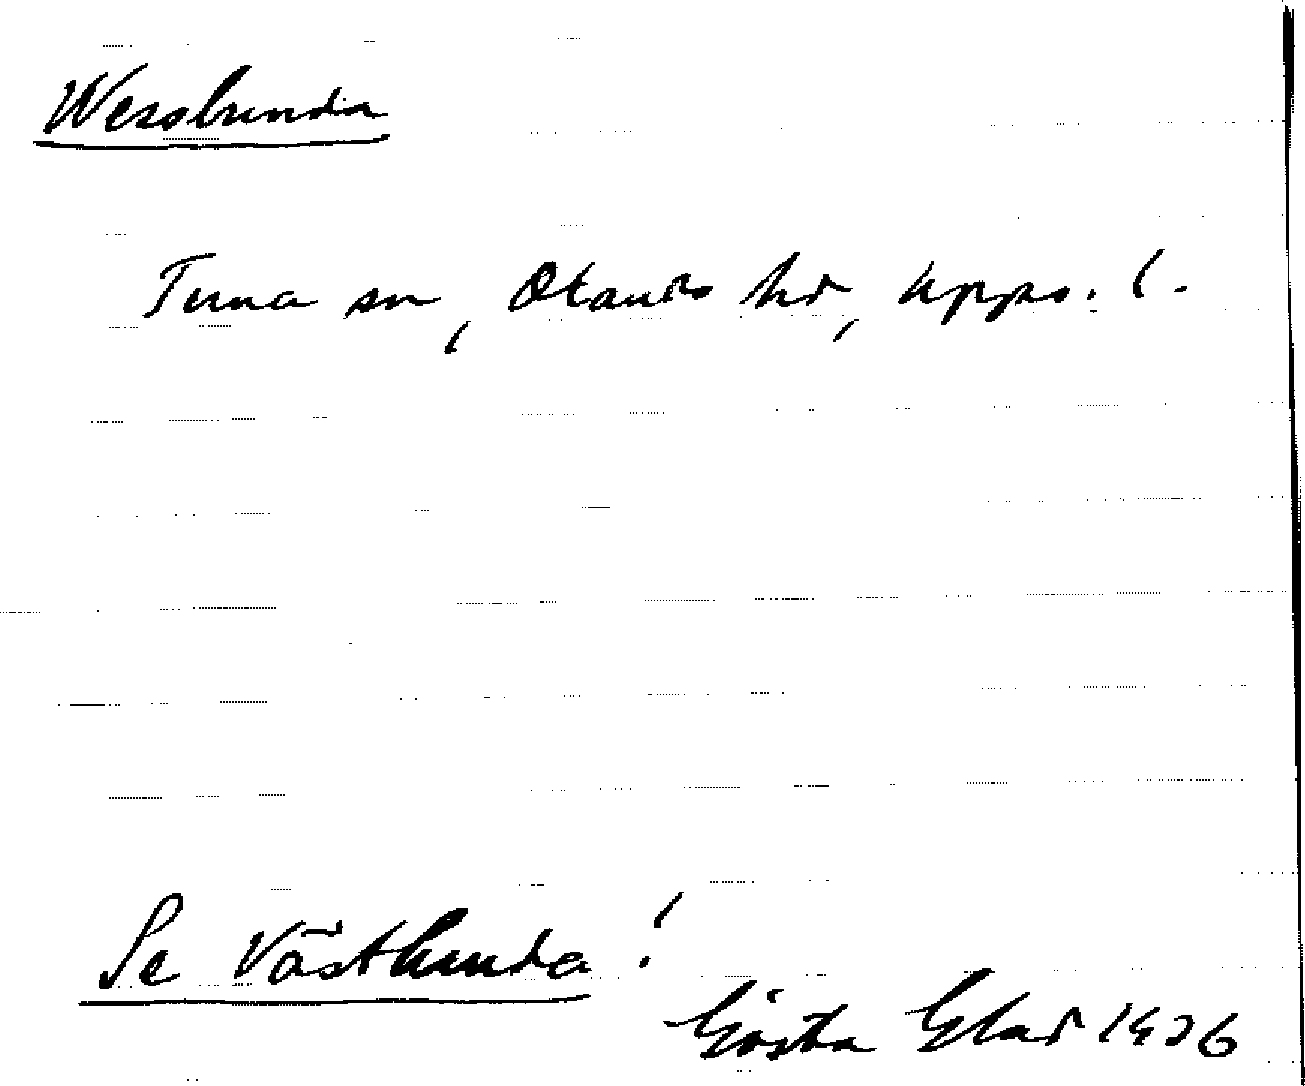 Wesslunda
Tuna sn, Olands hd, Upps. l.
Se Västlunda!
Gösta Elard 1936